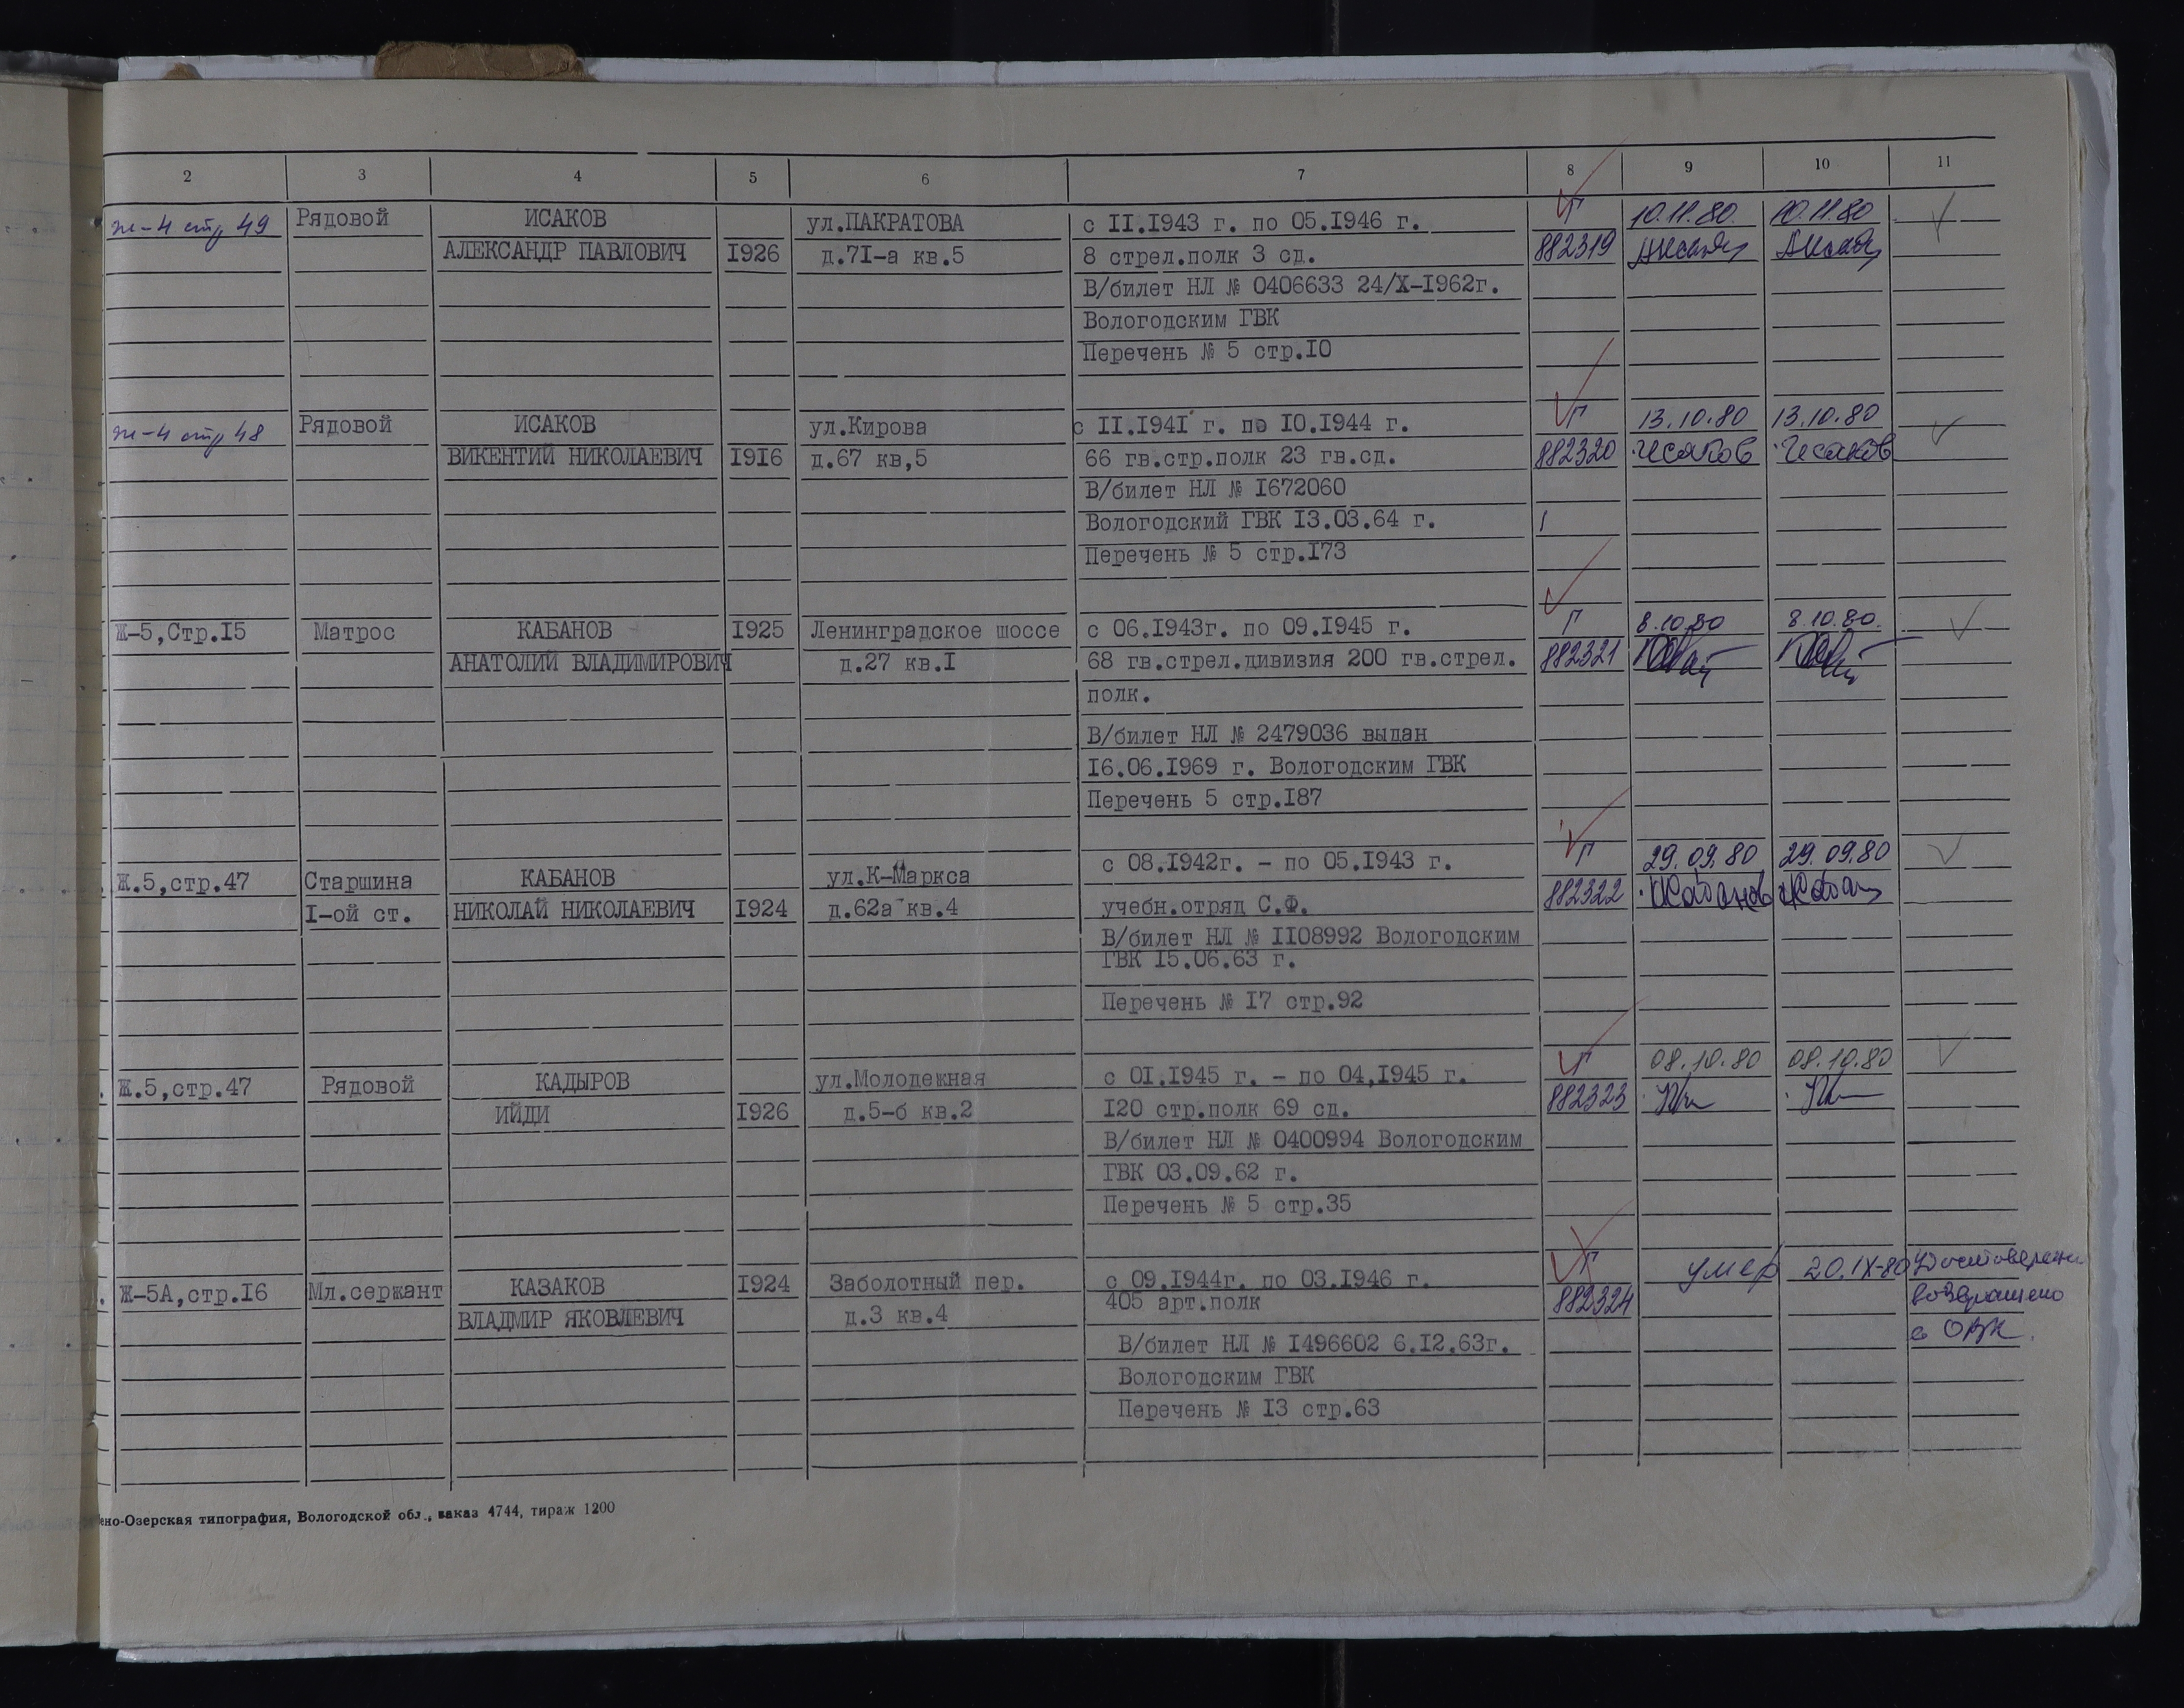 2 3 4 5 6 7 8 9 10 11
ж-4 стр 49 Рядовой ИСАКОВ ул.ПАКРАТОВА с II.I943 г. по 05.I946 г. Г 10.11.80 10.11.80
АЛЕКСАНДР ПАВЛОВИЧ I926 д.7I-а кв.5 8 стрел.полк 3 сд. 882319
В/билет НЛ № 0406633 24/X-I962г.
Вологодским ГВК
Перечень № 5 стр.I0
ж-4 стр 48 Рядовой ИСАКОВ ул.Кирова с II.I94I г. по I0.I944 г. Г 13.10.80 13.10.80
ВИКЕНТИЙ НИКОЛАЕВИЧ I9I6 д.67 кв,5 66 гв.стр.полк 23 гв.сд. 882320 Исаков Исаков
В/билет НЛ № I672060
Вологодский ГВК I3.03.64 г.
Перечень № 5 стр.I73
Ж-5,Стр.I5 Матрос КАБАНОВ I925 Ленинградское шоссе с 06.I943г. по 09.I945 г. Г 8.10.80 8.10.80.
АНАТОЛИЙ ВЛАДИМИРОВИЧ д.27 кв.I 68 гв.стрел.дивизия 200 гв.стрел. 882321
полк.
В/билет НЛ № 2479036 выдан
I6.06.I969 г. Вологодским ГВК
Перечень 5 стр.I87
Ж.5,стр.47 Старшина КАБАНОВ ул.К-Маркса с 08.I942г. - по 05.I943 г. Г 29.09.80 29.09.80
I-ой ст. НИКОЛАЙ НИКОЛАЕВИЧ I924 д.62а кв.4 учебн.отряд С.Ф. 882322 Кабанов
В/билет НЛ № II08992 Вологодским
ГВК I5.06.63 г.
Перечень № I7 стр.92
Ж.5,стр.47 Рядовой КАДЫРОВ ул.Молодежная с 0I.I945 г. - по 04,I945 г. Г 08.10.80 08.10.80
ИЙДИ I926 д.5-б кв.2 I20 стр.полк 69 сд. 882323
В/билет НЛ № 0400994 Вологодским
ГВК 03.09.62 г.
Перечень № 5 стр.35
Ж-5А,стр.I6 Мл.сержант КАЗАКОВ I924 Заболотный пер. с 09.I944г. по 03.I946 г. Г умер 20.IX-80 Удостоверение
ВЛАДМИР ЯКОВЛЕВИЧ д.3 кв.4 405 арт.полк 882324 возвращено
В/билет НЛ № I496602 6.I2.63г. в ОВК.
Вологодским ГВК
Перечень № I3 стр.63
но-Озерская типография, Вологодской обл., заказ 4744, тираж 1200